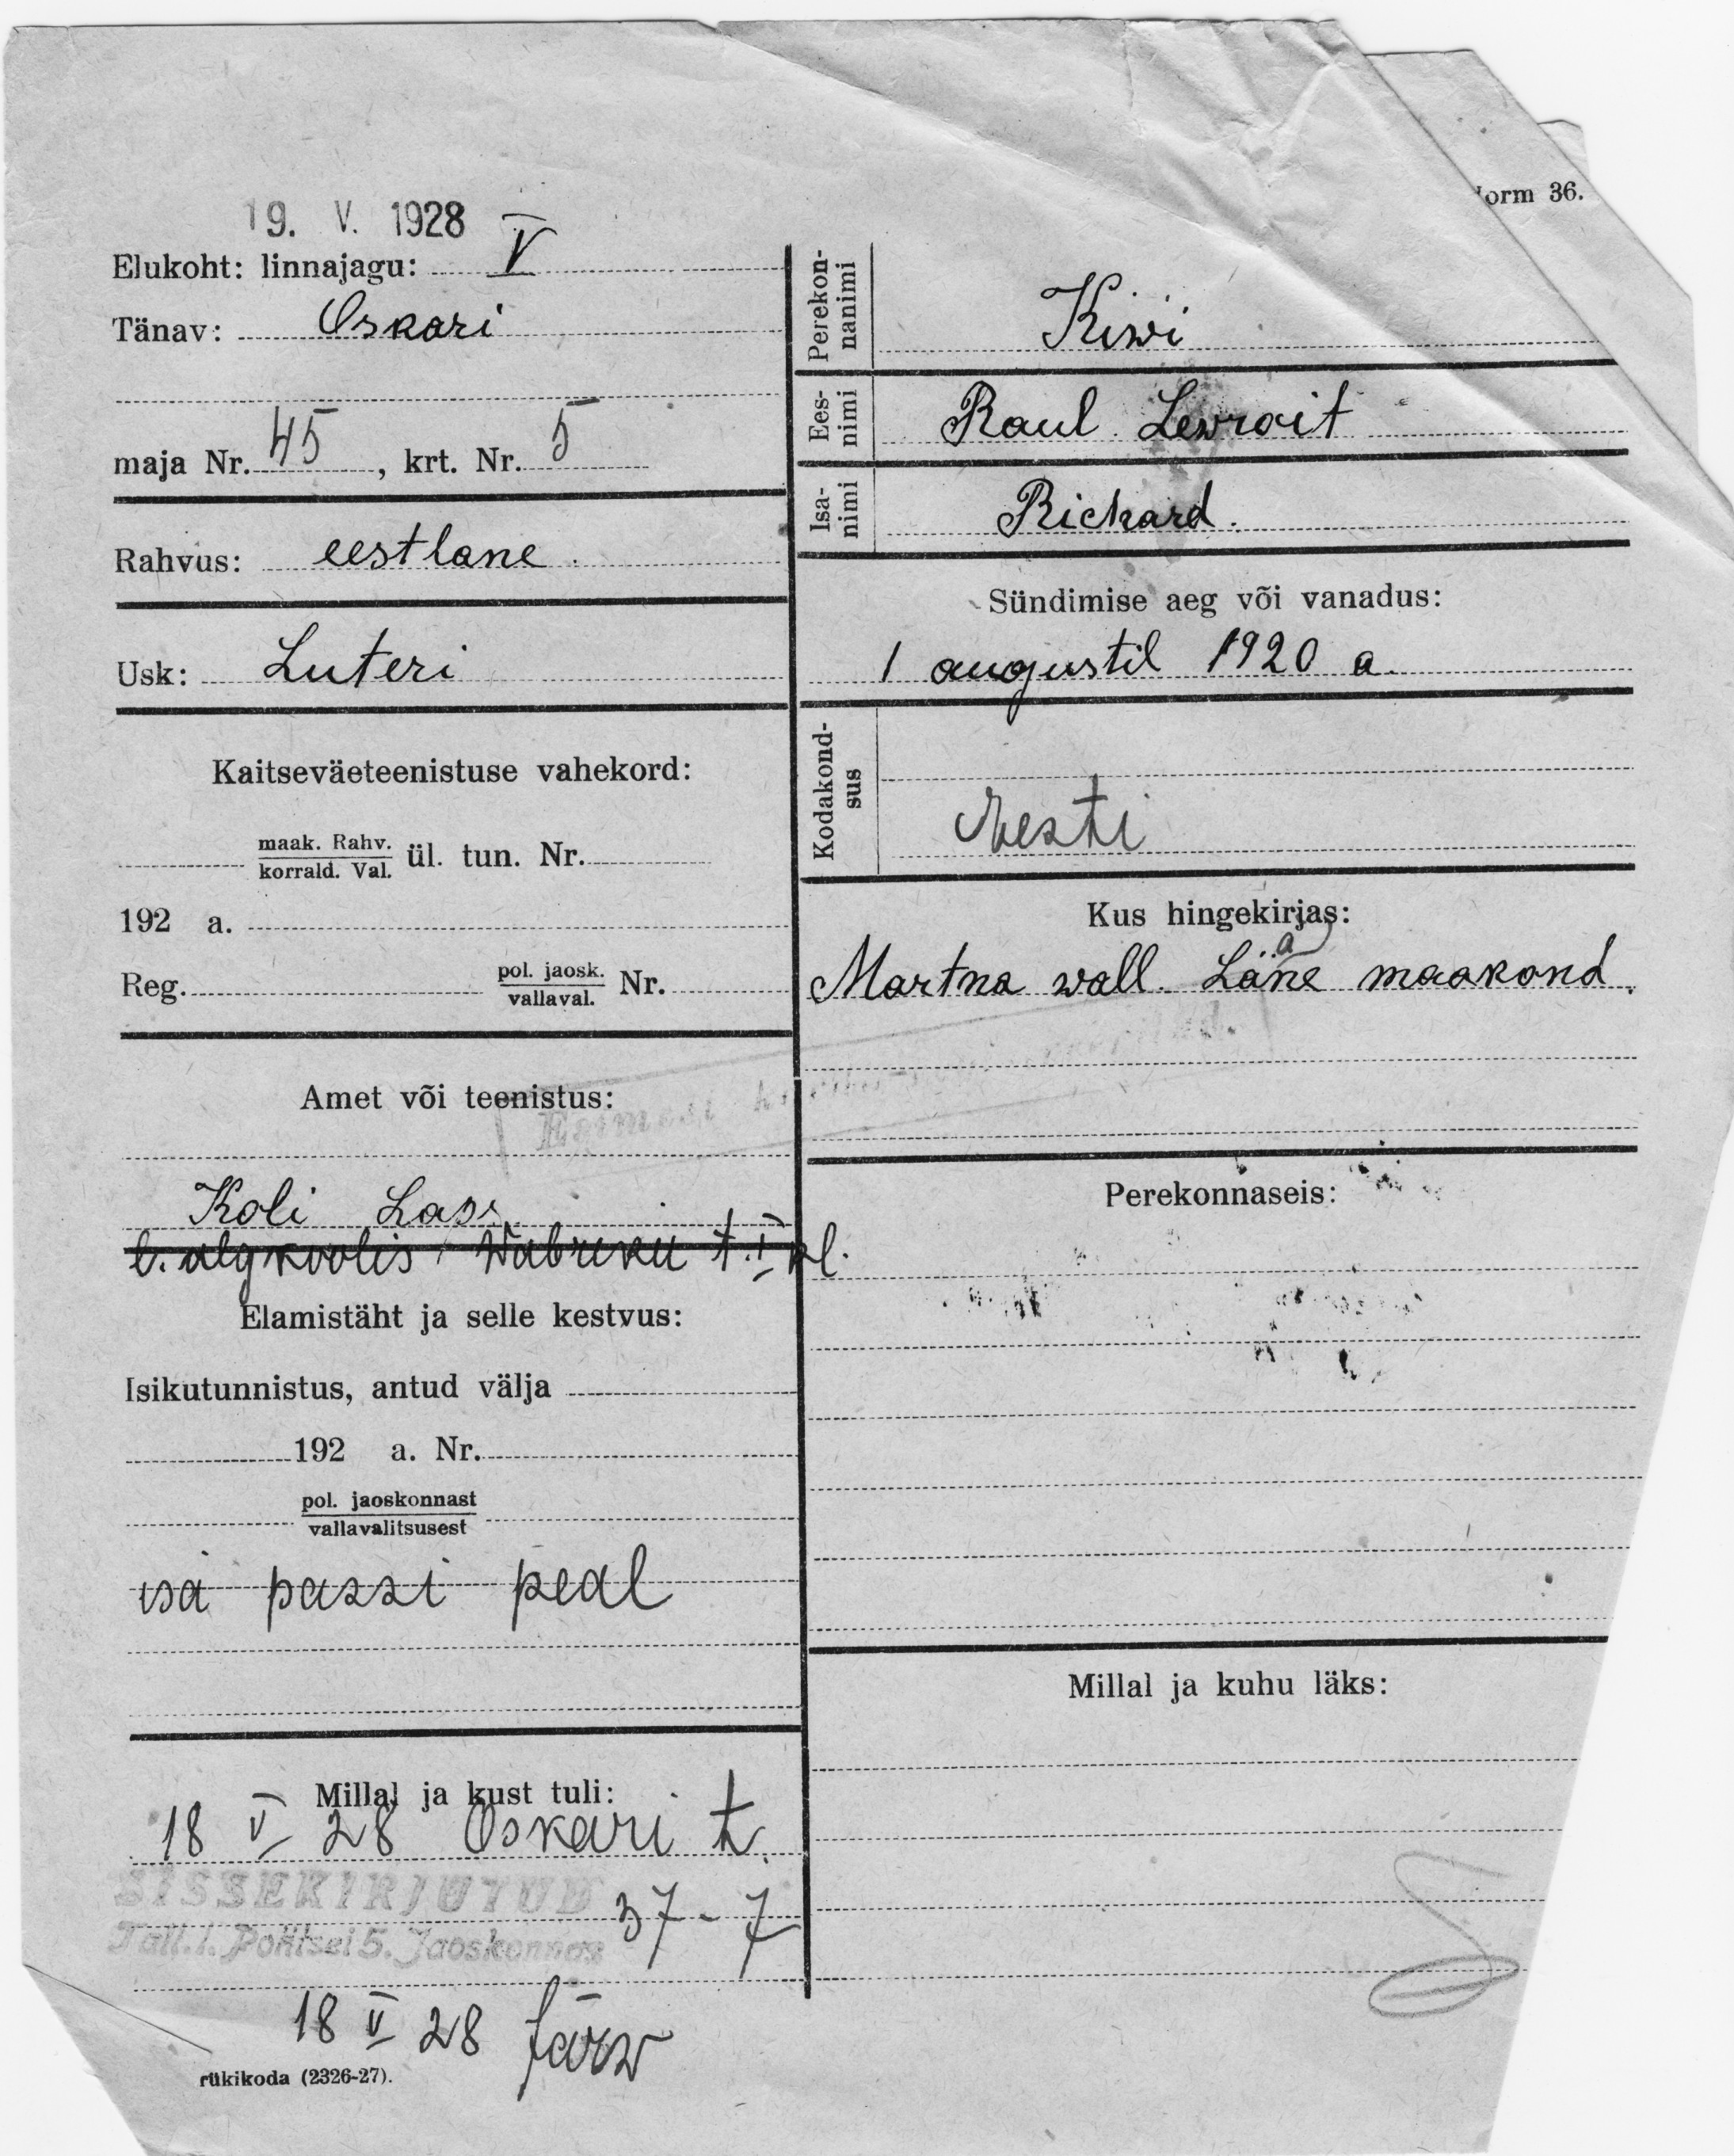 orm 36.
19. V. 1928
Elukoht: linnajagu: V
Tänav: Oskari
maja Nr. 45, krt. Nr. 5
Rahvus: eestlane.
Usk: Luteri
Kaitseväeteenistuse vahekord:
maak. Rahv.
korrald. Val. ül. tun. Nr.
192 a.
Reg. pol. jaosk.
vallaval. Nr.
Amet või teenistus:
Koli Laps
b. algkoolis Wabriku t. I kl.
Elamistäht ja selle kestvus:
Isikutunnistus, antud välja
192 a. Nr.
pol. jaoskonnast
vallavalitsusest
isa passi peal
Millal ja kust tuli:
18 V 28 Oskari t.
37-7
SISSEKIRJUTUD
Tall. l. Politsei 5. Jaoskonnas
18 V 28 Järw
rükikoda (2326-27).
Perekon-
nanimi
Kiwi
Ees-
nimi
Raul Lewroit
Isa-
nimi
Richard.
Sündimise aeg või vanadus:
1 augustil 1920 a.
Kodakond-
sus
Eesti
Kus hingekirjas:
Martna wall. Lääne maakond.
Perekonnaseis:
Millal ja kuhu läks: